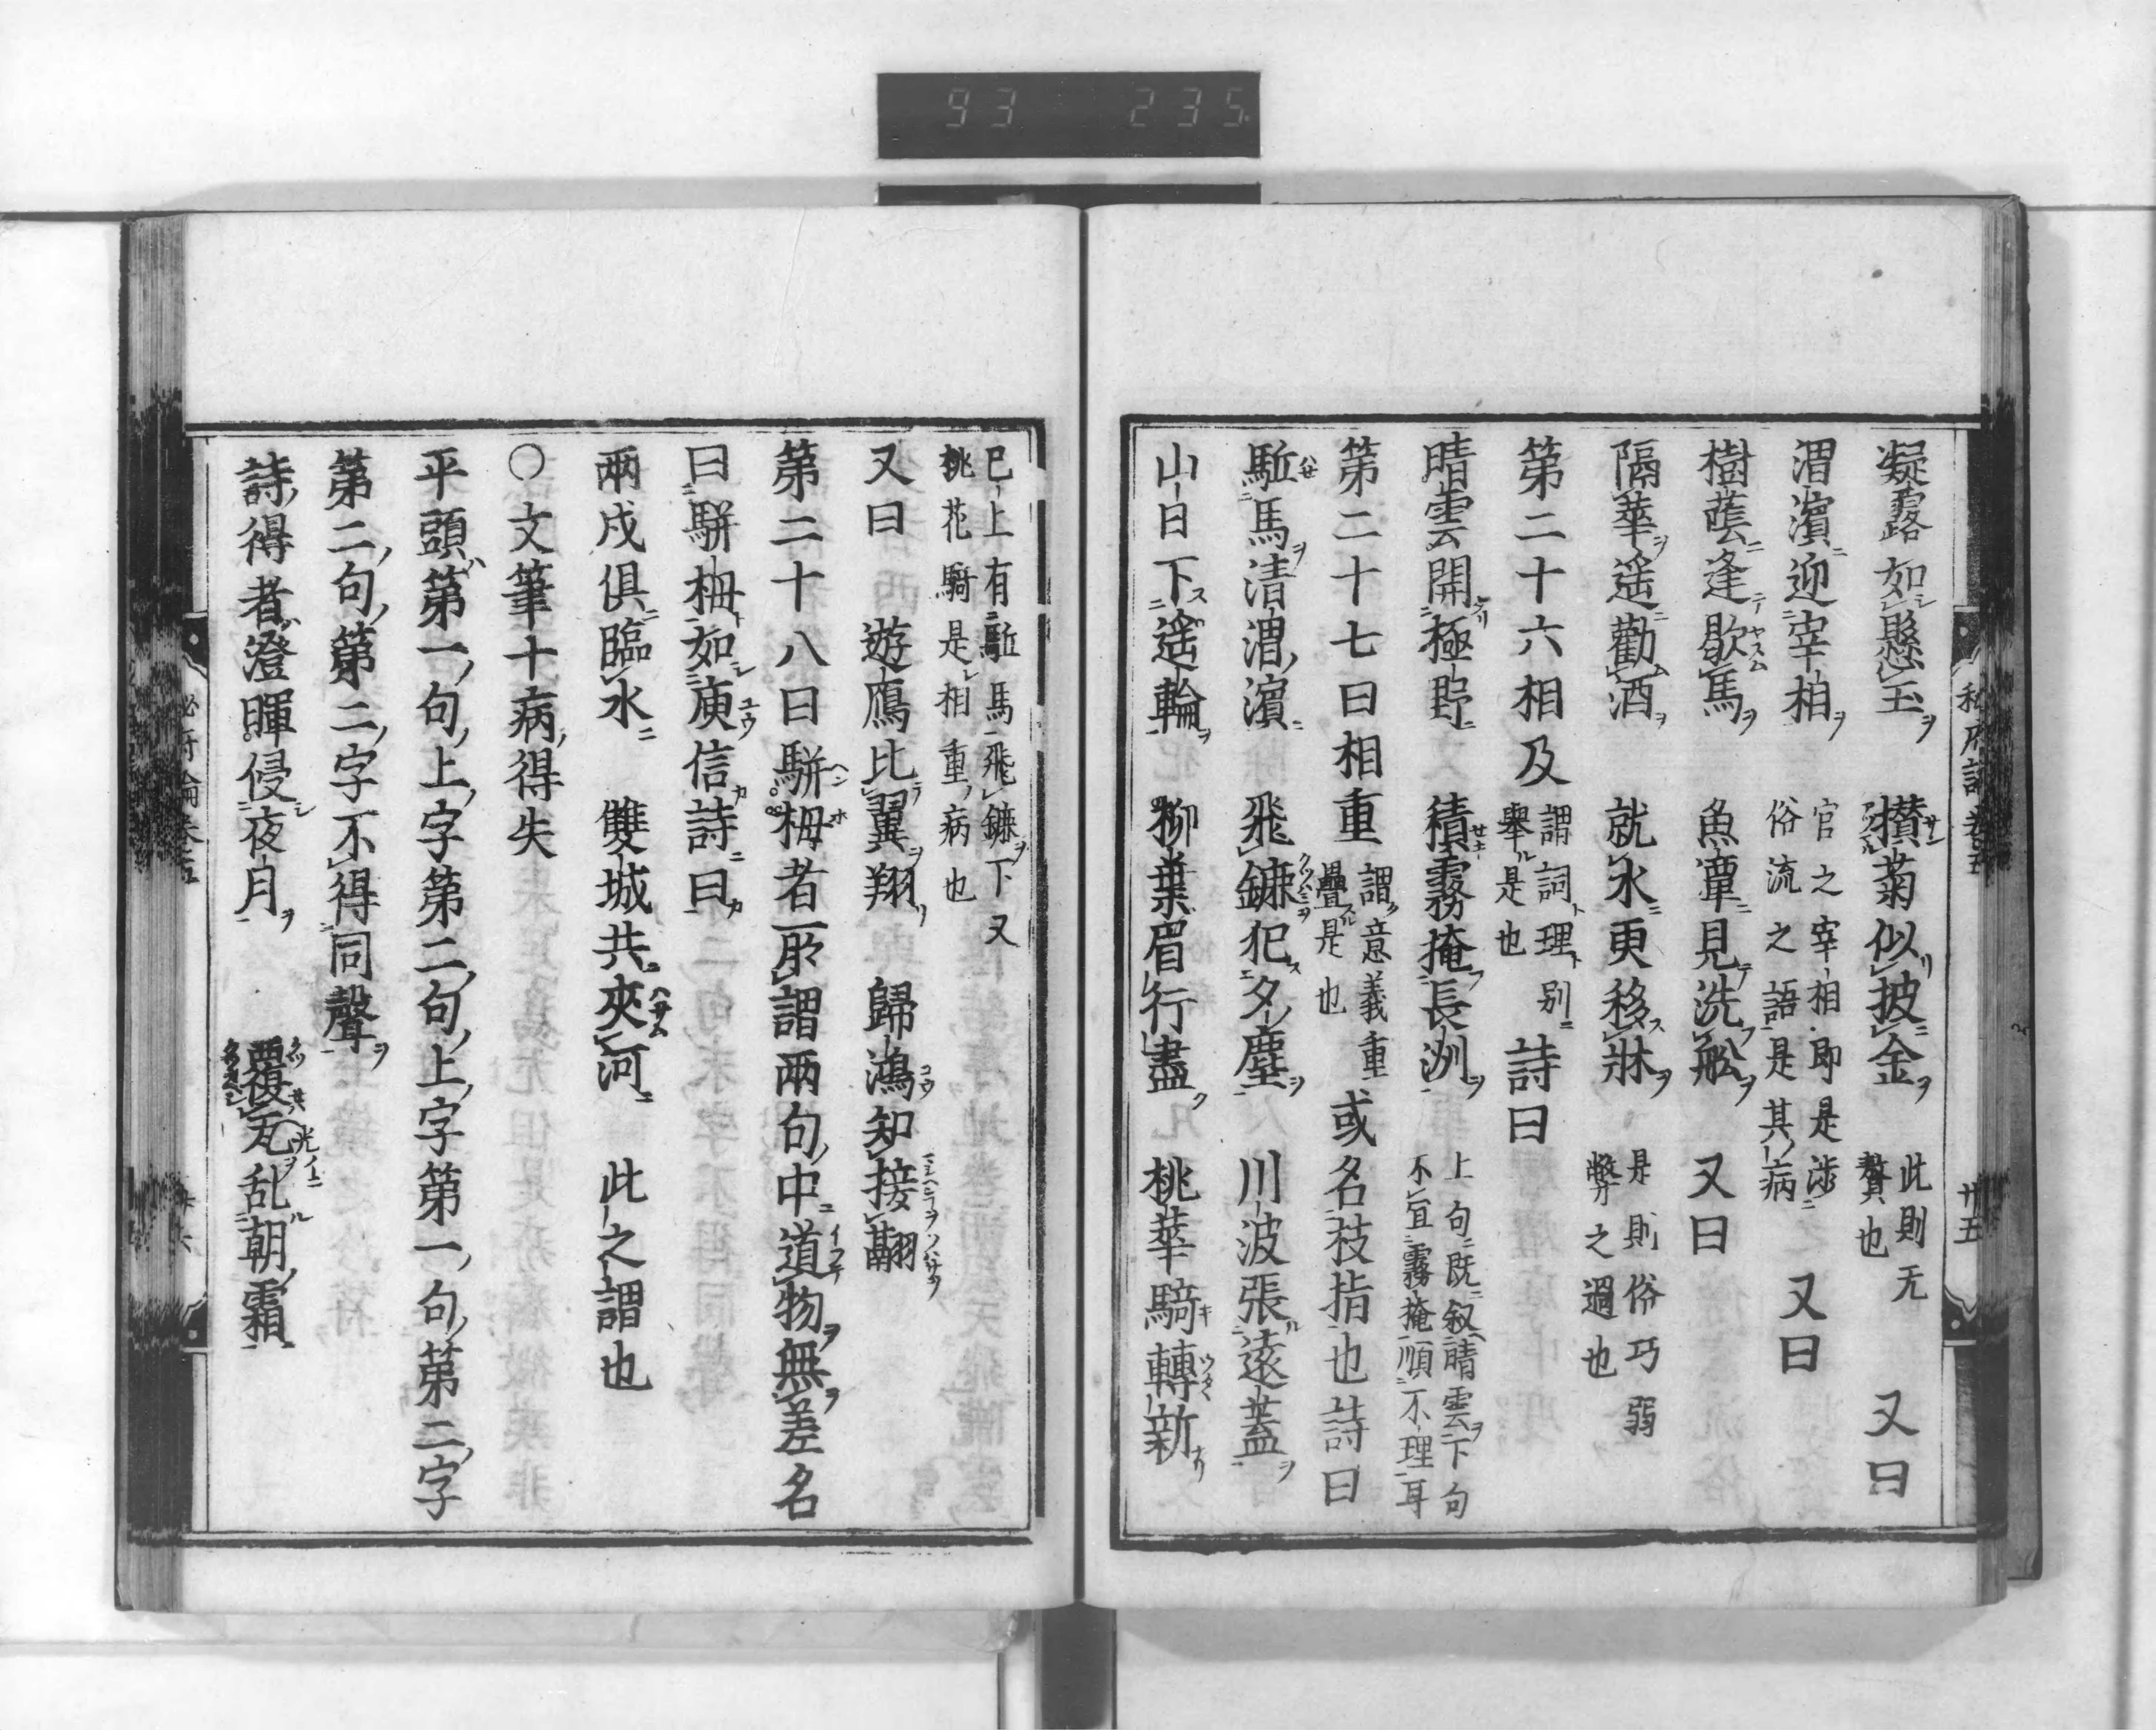 93 235
凝露如懸玉 攅菊似披金 此則无贅也 又曰
渭濱迎宰相 官之宰相即是涉俗流之語是其病 又曰
樹蔭逢歇馬 魚潭見洗舩 又曰
隔華遥勸酒 就水更移牀 是則俗巧弱弊之過也
第二十六相及 謂詞理別擧是也 詩曰
晴雲開極野 積霧掩長洲 上句既叙晴雲下句不宜霧掩順不理耳
第二十七曰相重 謂意義重疊是也 或名枝指也詩曰
駈馬清渭濱 飛鑣犯夕塵 川波張遠蓋
山日下遥輪 柳葉眉行盡 桃華騎轉新
已上有駈馬飛鑣下又桃花騎是相重病也
又曰 遊鴈比翼翔 歸鴻知接翮
第二十八曰駢拇者所謂兩句中道物無差名
曰駢拇如庾信詩曰
兩戍俱臨水 雙城共夾河 此之謂也
○文筆十病得失
平頭第一句上字第二句上字第一句第二字
第二句第二字不得同聲
詩得者澄暉侵夜月 覆瓦乱朝霜